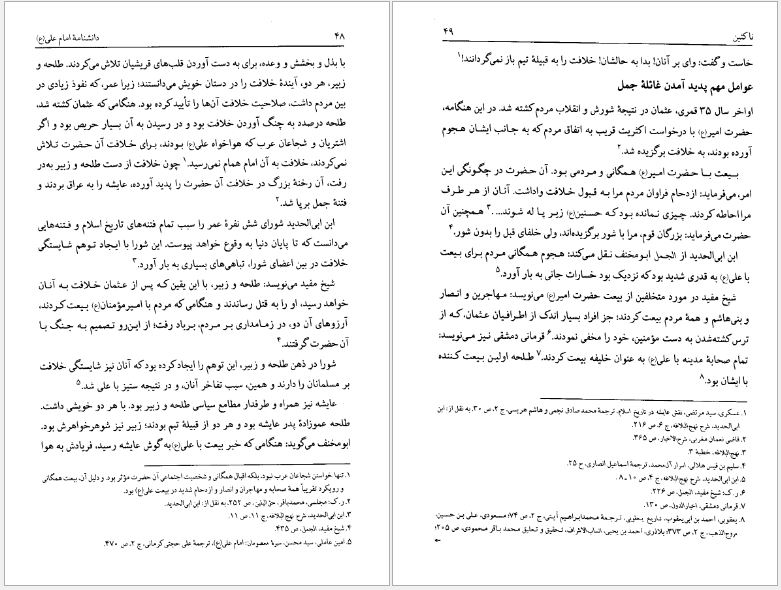 ۴۸
دانشنامهٔ امام علی(ع)
با بذل و بخشش و وعده، برای به دست آوردن قلب‌های قریشیان تلاش می‌کردند. طلحه و
زبیر، هر دو، آیندهٔ خلافت را در دستان خویش می‌دانستند؛ زیرا عمر، که نفوذ زیادی در
بین مردم داشت، صلاحیت خلافت آن‌ها را تأیید کرده بود. هنگامی که عثمان کشته شد،
طلحه درصدد به چنگ آوردن خلافت بود و در رسیدن به آن بسیار حریص بود و اگر
اشتریان و شجاعان عرب که هواخواه علی(ع) بودند، برای خلافت آن حضرت تلاش
نمی‌کردند، خلافت به آن امام همام نمی‌رسید.۱ چون خلافت از دست طلحه و زبیر به‌در
رفت، آن رخنهٔ بزرگ در خلافت آن حضرت را پدید آورده، عایشه را به عراق بردند و
فتنهٔ جمل برپا شد.۲
ابن ابی‌الحدید شورای شش نفرهٔ عمر را سبب تمام فتنه‌های تاریخ اسلام و فتنه‌هایی
می‌دانست که تا پایان دنیا به وقوع خواهد پیوست. این شورا با ایجاد توهم شایستگی
خلافت در بین اعضای شورا، تباهی‌های بسیاری به بار آورد.۳
شیخ مفید می‌نویسد: طلحه و زبیر، با این یقین که پس از عثمان خلافت به آنان
خواهد رسید، او را به قتل رساندند و هنگامی که مردم با امیرمؤمنان(ع) بیعت کردند،
آرزوهای آن دو، در زمامداری بر مردم، برباد رفت؛ از این‌رو تصمیم به جنگ با
آن حضرت گرفتند.۴
شورا در ذهن طلحه و زبیر، این توهم را ایجاد کرده بود که آنان نیز شایستگی خلافت
بر مسلمانان را دارند و همین، سبب تفاخر آنان، و در نتیجه ستیز با علی شد.۵
عایشه نیز همراه و طرفدار مطامع سیاسی طلحه و زبیر بود. با هر دو خویشی داشت.
طلحه عموزادهٔ پدر عایشه بود و هر دو از قبیلهٔ تیم بودند؛ زبیر نیز شوهرخواهرش بود.
ابومخنف می‌گوید: هنگامی که خبر بیعت با علی(ع) به گوش عایشه رسید، فریادش به هوا
۱. تنها خواستن شجاعان عرب نبود، بلکه اقبال همگانی و شخصیت اجتماعی آن حضرت مؤثر بود. و دلیل آن، بیعت همگانی
و رویکرد تقریباً همهٔ صحابه و مهاجران و انصار و ازدحام شدید در بیعت علی(ع) بود.
۲. ر.ک: مجلسی، محمدباقر، حق‌الیقین، ص ۲۵۲، به نقل از: ابن ابی‌الحدید.
۳. ابن ابی‌الحدید، شرح نهج‌البلاغه، ج ۱۱، ص ۱۱.
۴. شیخ مفید، الجمل، ص ۴۳۵.
۵. امین عاملی، سید محسن، سیرهٔ معصومان: امام علی(ع)، ترجمهٔ علی حجتی کرمانی، ج ۲، ص ۴۷۰.
ناکثین
۴۹
خاست و گفت: وای بر آنان! بدا به حالشان! خلافت را به قبیلهٔ تیم باز نمی‌گردانند!۱
عوامل مهم پدید آمدن غائلهٔ جمل
اواخر سال ۳۵ قمری، عثمان در نتیجهٔ شورش و انقلاب مردم کشته شد. در این هنگامه،
حضرت امیر(ع) با درخواست اکثریت قریب به اتفاق مردم که به جانب ایشان هجوم
آورده بودند، به خلافت برگزیده شد.۲
بیعت با حضرت امیر(ع) همگانی و مردمی بود. آن حضرت در چگونگی این
امر، می‌فرماید: ازدحام فراوان مردم مرا به قبول خلافت واداشت. آنان از هر طرف
مرا احاطه کردند. چیزی نمانده بود که حسنین(ع) زیر پا له شوند.... ۳ همچنین آن
حضرت می‌فرماید: بزرگان قوم، مرا با شور برگزیده‌اند، ولی خلفای قبل را بدون شور.۴
ابن ابی‌الحدید از الجمل ابومخنف نقل می‌کند: هجوم همگانی مردم برای بیعت
با علی(ع) به قدری شدید بود که نزدیک بود خسارات جانی به بار آورد.۵
شیخ مفید در مورد متخلفین از بیعت حضرت امیر(ع) می‌نویسد: مهاجرین و انصار
و بنی‌هاشم و همهٔ مردم بیعت کردند؛ جز افراد بسیار اندک از اطرافیان عثمان، که از
ترس کشته‌شدن به دست مؤمنین، خود را مخفی نمودند.۶ قرمانی دمشقی نیز می‌نویسد:
تمام صحابهٔ مدینه با علی(ع) به عنوان خلیفه بیعت کردند.۷ طلحه اولین بیعت کننده
با ایشان بود.۸
۱. عسکری، سید مرتضی، نقش عایشه در تاریخ اسلام، ترجمهٔ محمد صادق نجمی و هاشم هریسی، ج ۲، ص ۳۰، به نقل از: ابن
ابی‌الحدید، شرح نهج‌البلاغه، ج ۶، ص ۲۱۶.
۲. قاضی نعمان مغربی، شرح‌الاخبار، ص ۳۶۵.
۳. نهج‌البلاغه، خطبهٔ ۳.
۴. سلیم بن قیس هلالی، اسرار آل‌محمد، ترجمهٔ اسماعیل انصاری، ح ۲۵.
۵. ابن ابی‌الحدید، شرح نهج‌البلاغه، ج ۴، ص ۱۰-۸.
۶. ر.ک: شیخ مفید، الجمل، ص ۲۲۶.
۷. قرمانی دمشقی، اخبارالدول، ص ۱۳۰.
۸. یعقوبی، احمد بن ابی‌یعقوب، تاریخ یعقوبی، ترجمهٔ محمدابراهیم آیتی، ج ۲، ص ۷۴؛ مسعودی، علی بن حسین،
مروج‌الذهب، ج ۲، ص ۳۷۳؛ بلاذری، احمد بن یحیی، انساب‌الاشراف، تحقیق و تعلیق محمد باقر محمودی، ص ۲۰۵؛